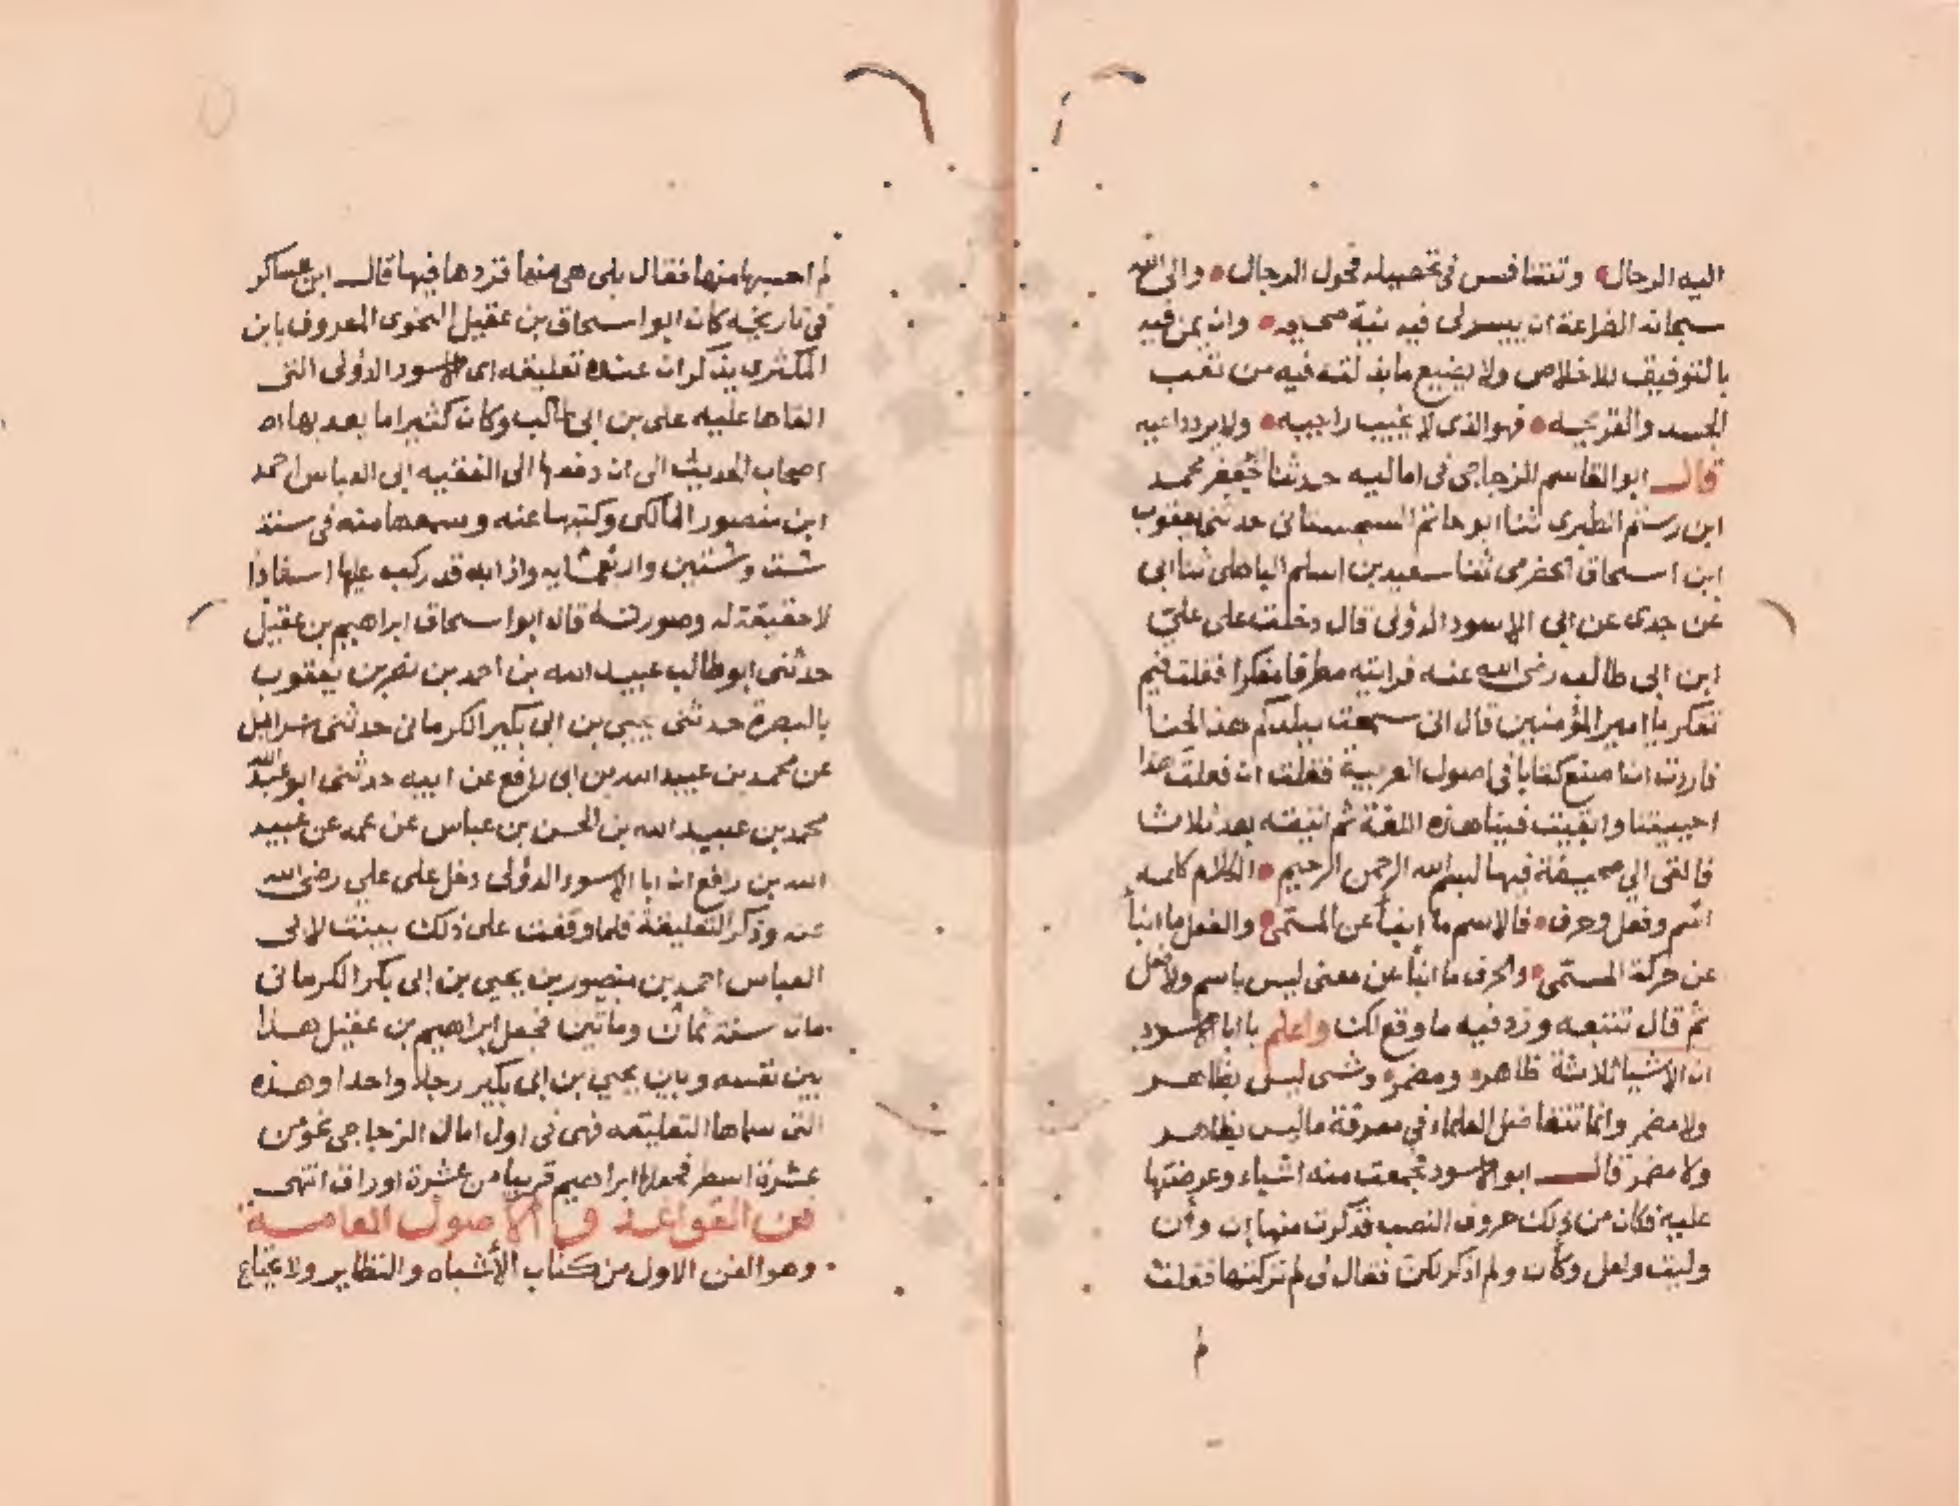 اليه الرحال • وتتنافس في تحصيله فحول الرجال • والى الله
سبحانه الضراعة ان ييسر لى فيه نية صحيحه • وان يمن فيه
بالتوفيق للاخلاص ولا يضيع ما بذلته فيه من تعب
الجسد والقريحه • فهو الذى لا يخيب راجيه • ولا يرد داعيه
قال ابو القاسم الزجاجى فى اماليه حدثنا ابو جعفر محمد
ابن رستم الطبرى ثنا ابو حاتم السجستانى حدثنى يعقوب
ابن اسحاق الحضرمى ثنا سعيد بن اسلم الباهلى ثنا ابى
عن جدى عن ابى الاسود الدؤلى قال دخلت على علىّ
ابن ابى طالب رضى الله عنه فرايته مطرقا مفكرا فقلت فيم
تفكر يا امير المؤمنين قال انى سمعت ببلدكم هذا لحنا
فاردت ان اصنع كتابا فى اصول العربية فقلت ان فعلت هذا
احييتنا وابقيت فينا هذه اللغة ثم اتيته بعد ثلاث
فالقى الي صحيفة فيها بسم الله الرحمن الرحيم • الكلام كله
اسم وفعل وحرف • فالاسم ما انبأ عن المسمى • والفعل ما انبأ
عن حركة المسمى • والحرف ما انبأ عن معنى ليس باسم ولا فعل
ثم قال تتبعه وزد فيه ما وقع لك واعلم يا ابا الاسود
ان الاشيا ثلاثة ظاهر ومضمر وشى ليس بظاهر
ولا مضمر وانما تتفاضل العلماء في معرفة ما ليس بظاهر
ولا مضمر قال ابو الاسود فجمعت منه اشياء وعرضتها
عليه فكان من ذلك حروف النصب فذكرت منها إن وأن
وليت ولعل وكأن ولم اذكر لكن فقال لى لم تركتها فقلت
لم
لم احسبها منها فقال بلى هى منها فزدها فيها قال ابن عساكر
فى تاريخه كان ابو اسحاق بن عقيل النحوى المعروف بابن
المكبرى يذكر ان عنده تعليقه ابى الاسود الدؤلى التى
القاها عليه على بن ابى طالب وكان كثيرا ما يعد بها
اصحاب الحديث الى ان دفعها الى الفقيه ابى العباس احمد
ابن منصور المالكى وكتبها عنه وسمعها منه فى سنة
ست وستين واربعمايه واذا به قد ركب عليها اسنادا
لا حقيقة له وصورته قال ابو اسحاق ابراهيم بن عقيل
حدثنى ابو طالب عبيد الله بن احمد بن نصر بن يعقوب
بالبصرة حدثنى يحيى بن ابى بكير الكرمانى حدثنى اسرائيل
عن محمد بن عبيد الله بن ابى رافع عن ابيه حدثنى ابو عبد الله
محمد بن عبيد الله بن الحسن بن عباس عن عمه عن عبيد
الله بن رافع ان ابا الاسود الدؤلى دخل على على رضى الله
عنه وذكر التعليقة فلما وقفت على ذلك بينت لابى
العباس احمد بن منصور بن يحيى بن ابى بكر الكرمانى
مات سنة ثمان وماتين فجعل ابراهيم بن عقيل هذا
بين نفسه وبين يحيى بن ابى بكير رجلا واحدا وهذه
التى سماها التعليقه فهى فى اول امالى الزجاجى نحو من
عشرة اسطر فجعلها ابراهيم قريبا من عشرة اوراق انتهى
فن القواعد و الاصول العامة
وهو الفن الاول من كتاب الأشباه والنظاير